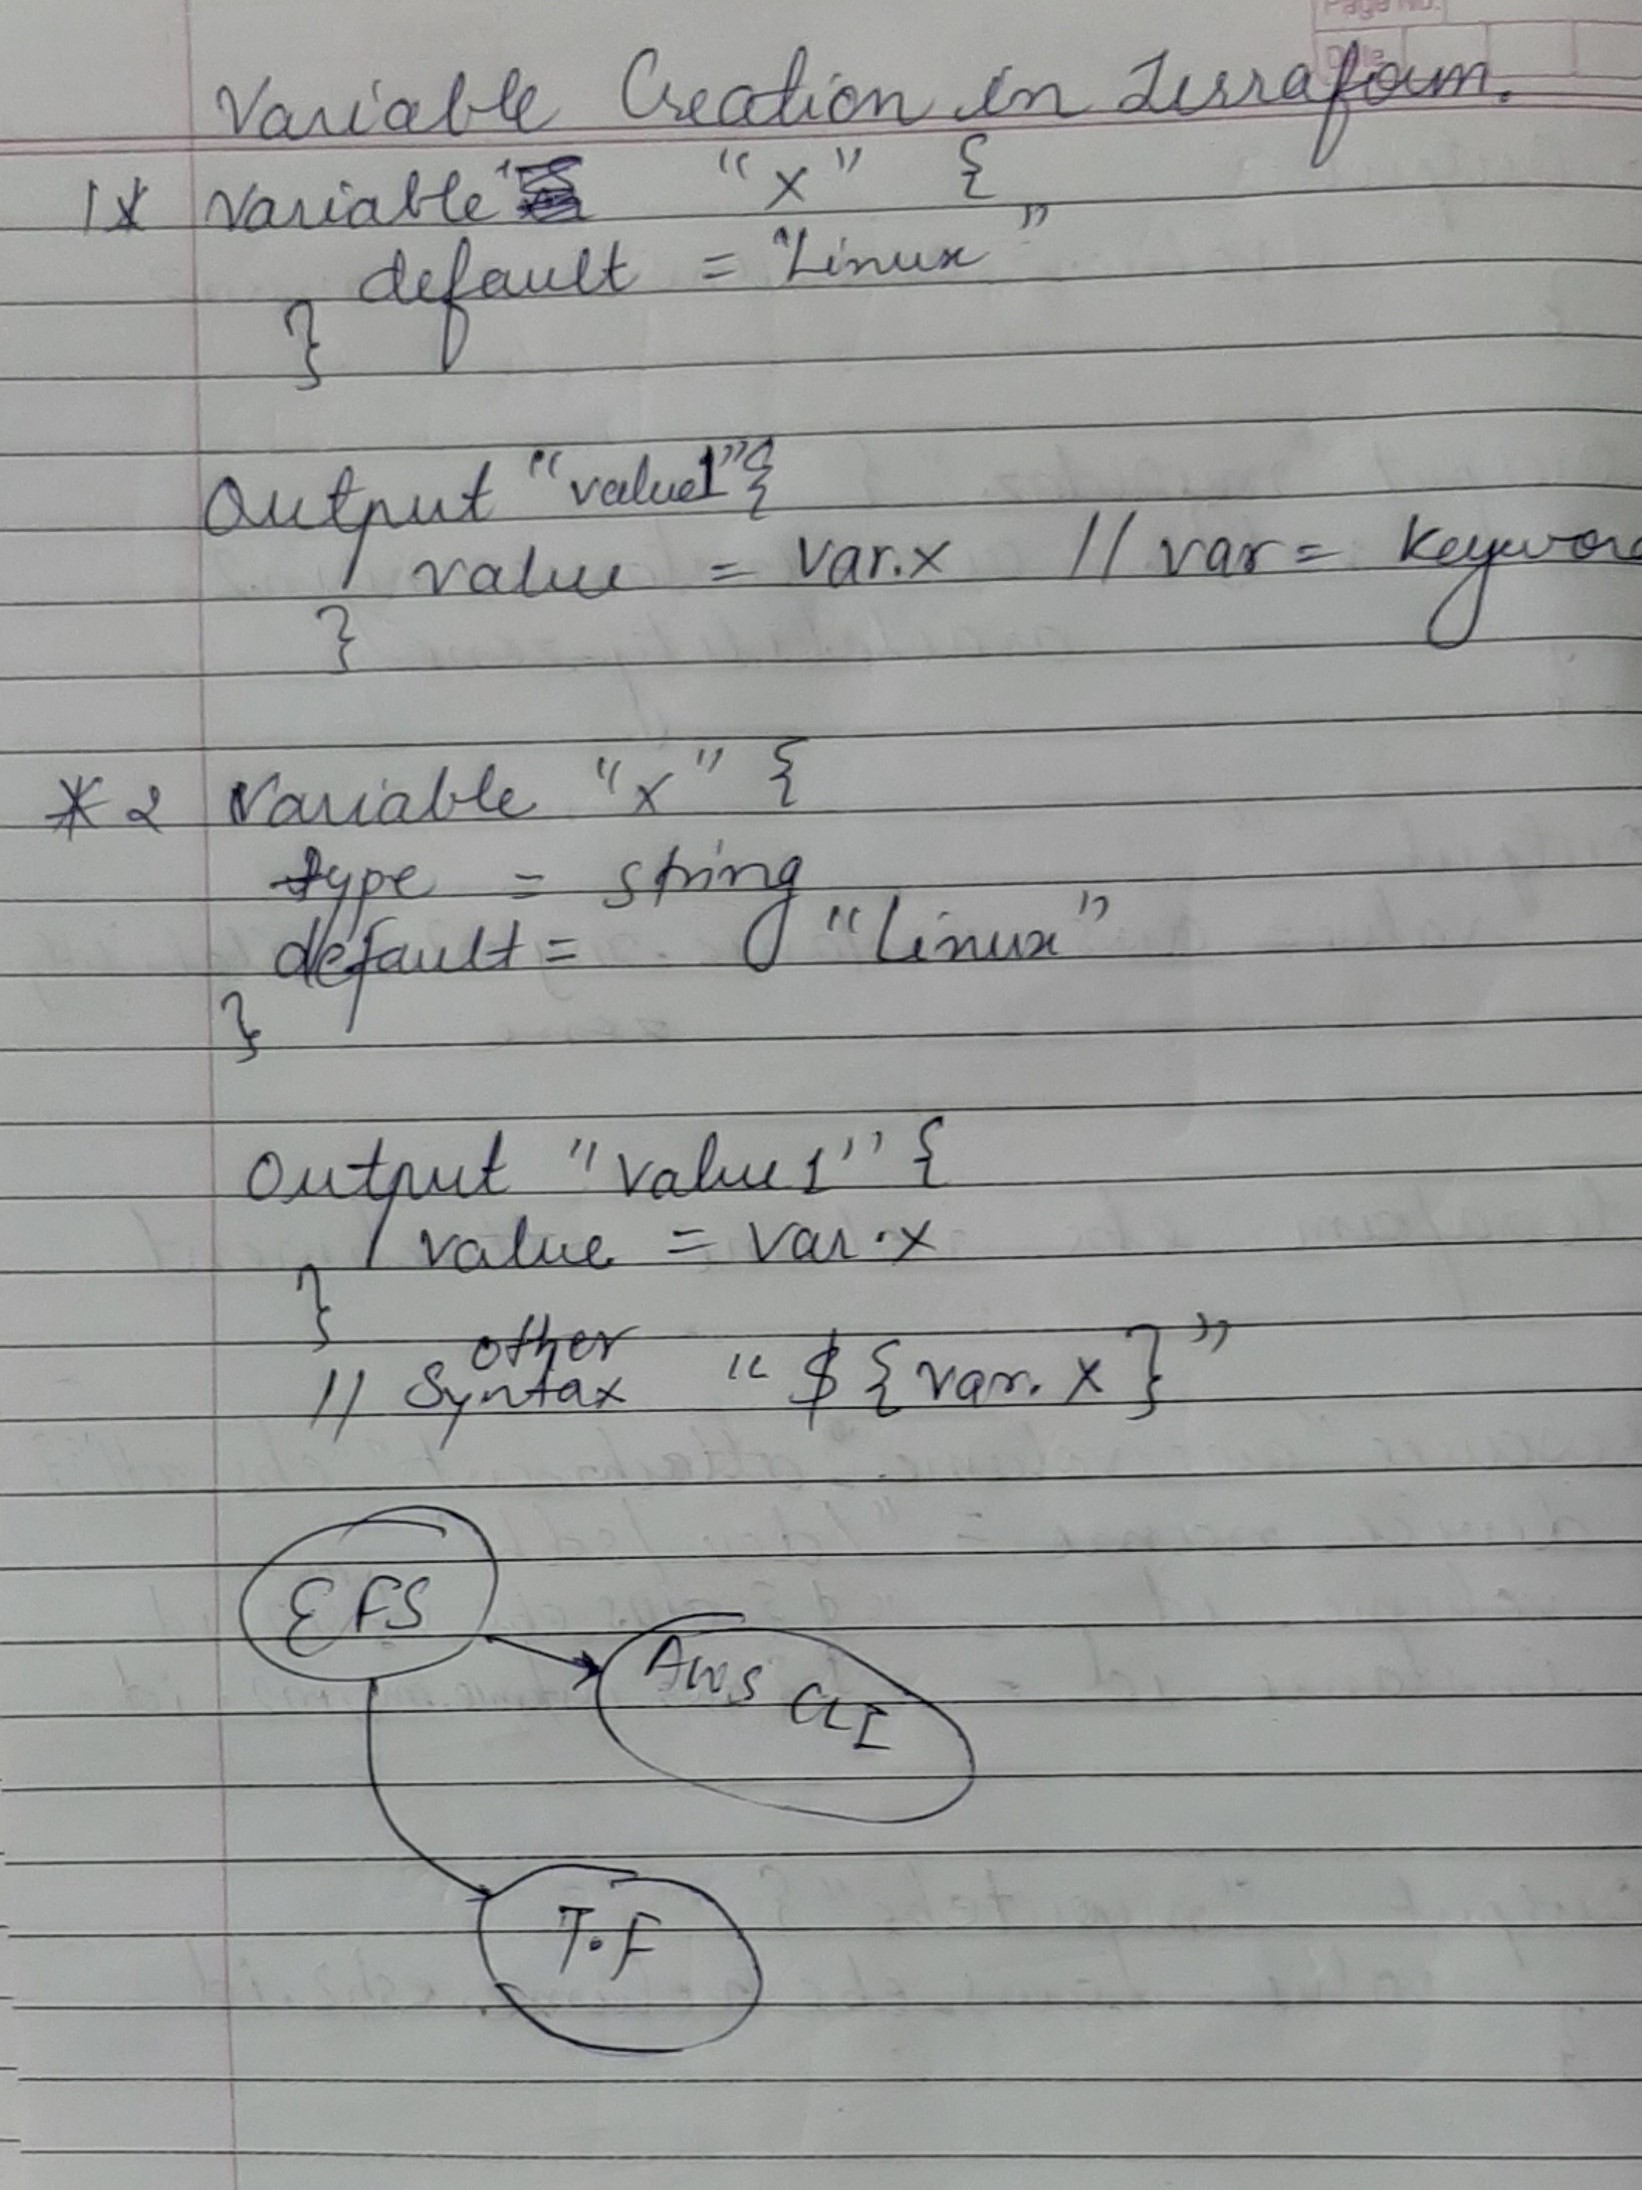 Page No.
Date
Variable Creation in Terraform.
1* Variable "x" {
default = "Linux"
}
Output "value1" {
value = var.x // var = keyword
}
* 2 Variable "x" {
type = string
default = "Linux"
}
Output "value1" {
value = var.x
}
// other Syntax "${var.x}"
EFS
AWS CLI
T.F